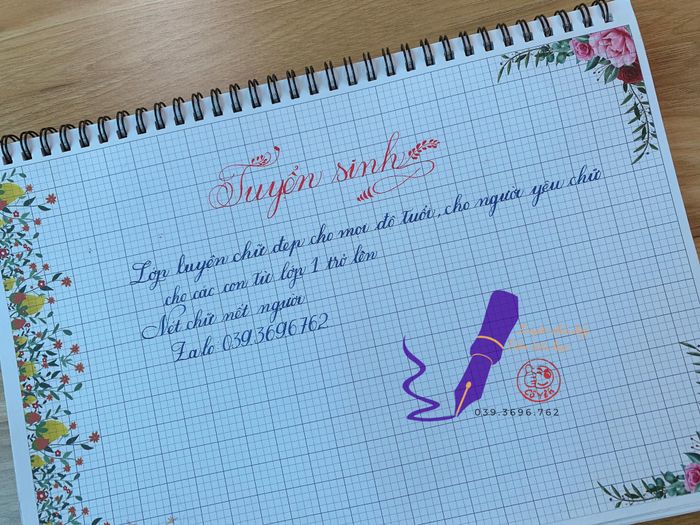 Tuyển sinh
Lớp luyện chữ đẹp cho mọi độ tuổi, cho người yêu chữ
cho các con từ lớp 1 trở lên
Nét chữ nết người
Zalo 039.3696.762
Cô Yến
039.3696.762